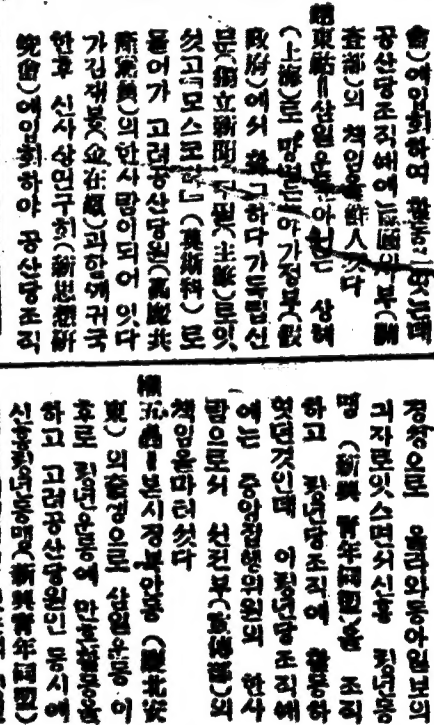 會)에입회하야 활동
공산당조직에에
査部)의 책임
趙東祜=삼일운동 상해
(上海)로 가정부(假
政府)에서 하다가독립신
문(獨立新聞 主筆)로잇
섯고『모스코바』(莫斯科) 로
들어가 고려공산당원(高麗共
産黨員)의한사람이되어 잇다
가김재봉(金在鳳)과함께귀국
한후 신사상연구회(新思想硏
究會)에입회하야 공산당조직
경성으로 올라와동아일보의
긔자로잇스면서신흥 청년동
맹 (新興靑年同盟)을 조직
하고 청년당조직에 활동하
엿던것인데 이청년당조직에
에는 중앙집행위원의 한사
람으로서 선전부(宣傳部)의
책임을마터섯다
權五卨=본시경북안동 (慶北安
東) 의출생으로 삼일운동 이
후로 청년운동에 만흔활동을
하고 고려공산당원인 동시에
신흥청년동맹(新興靑年同盟)